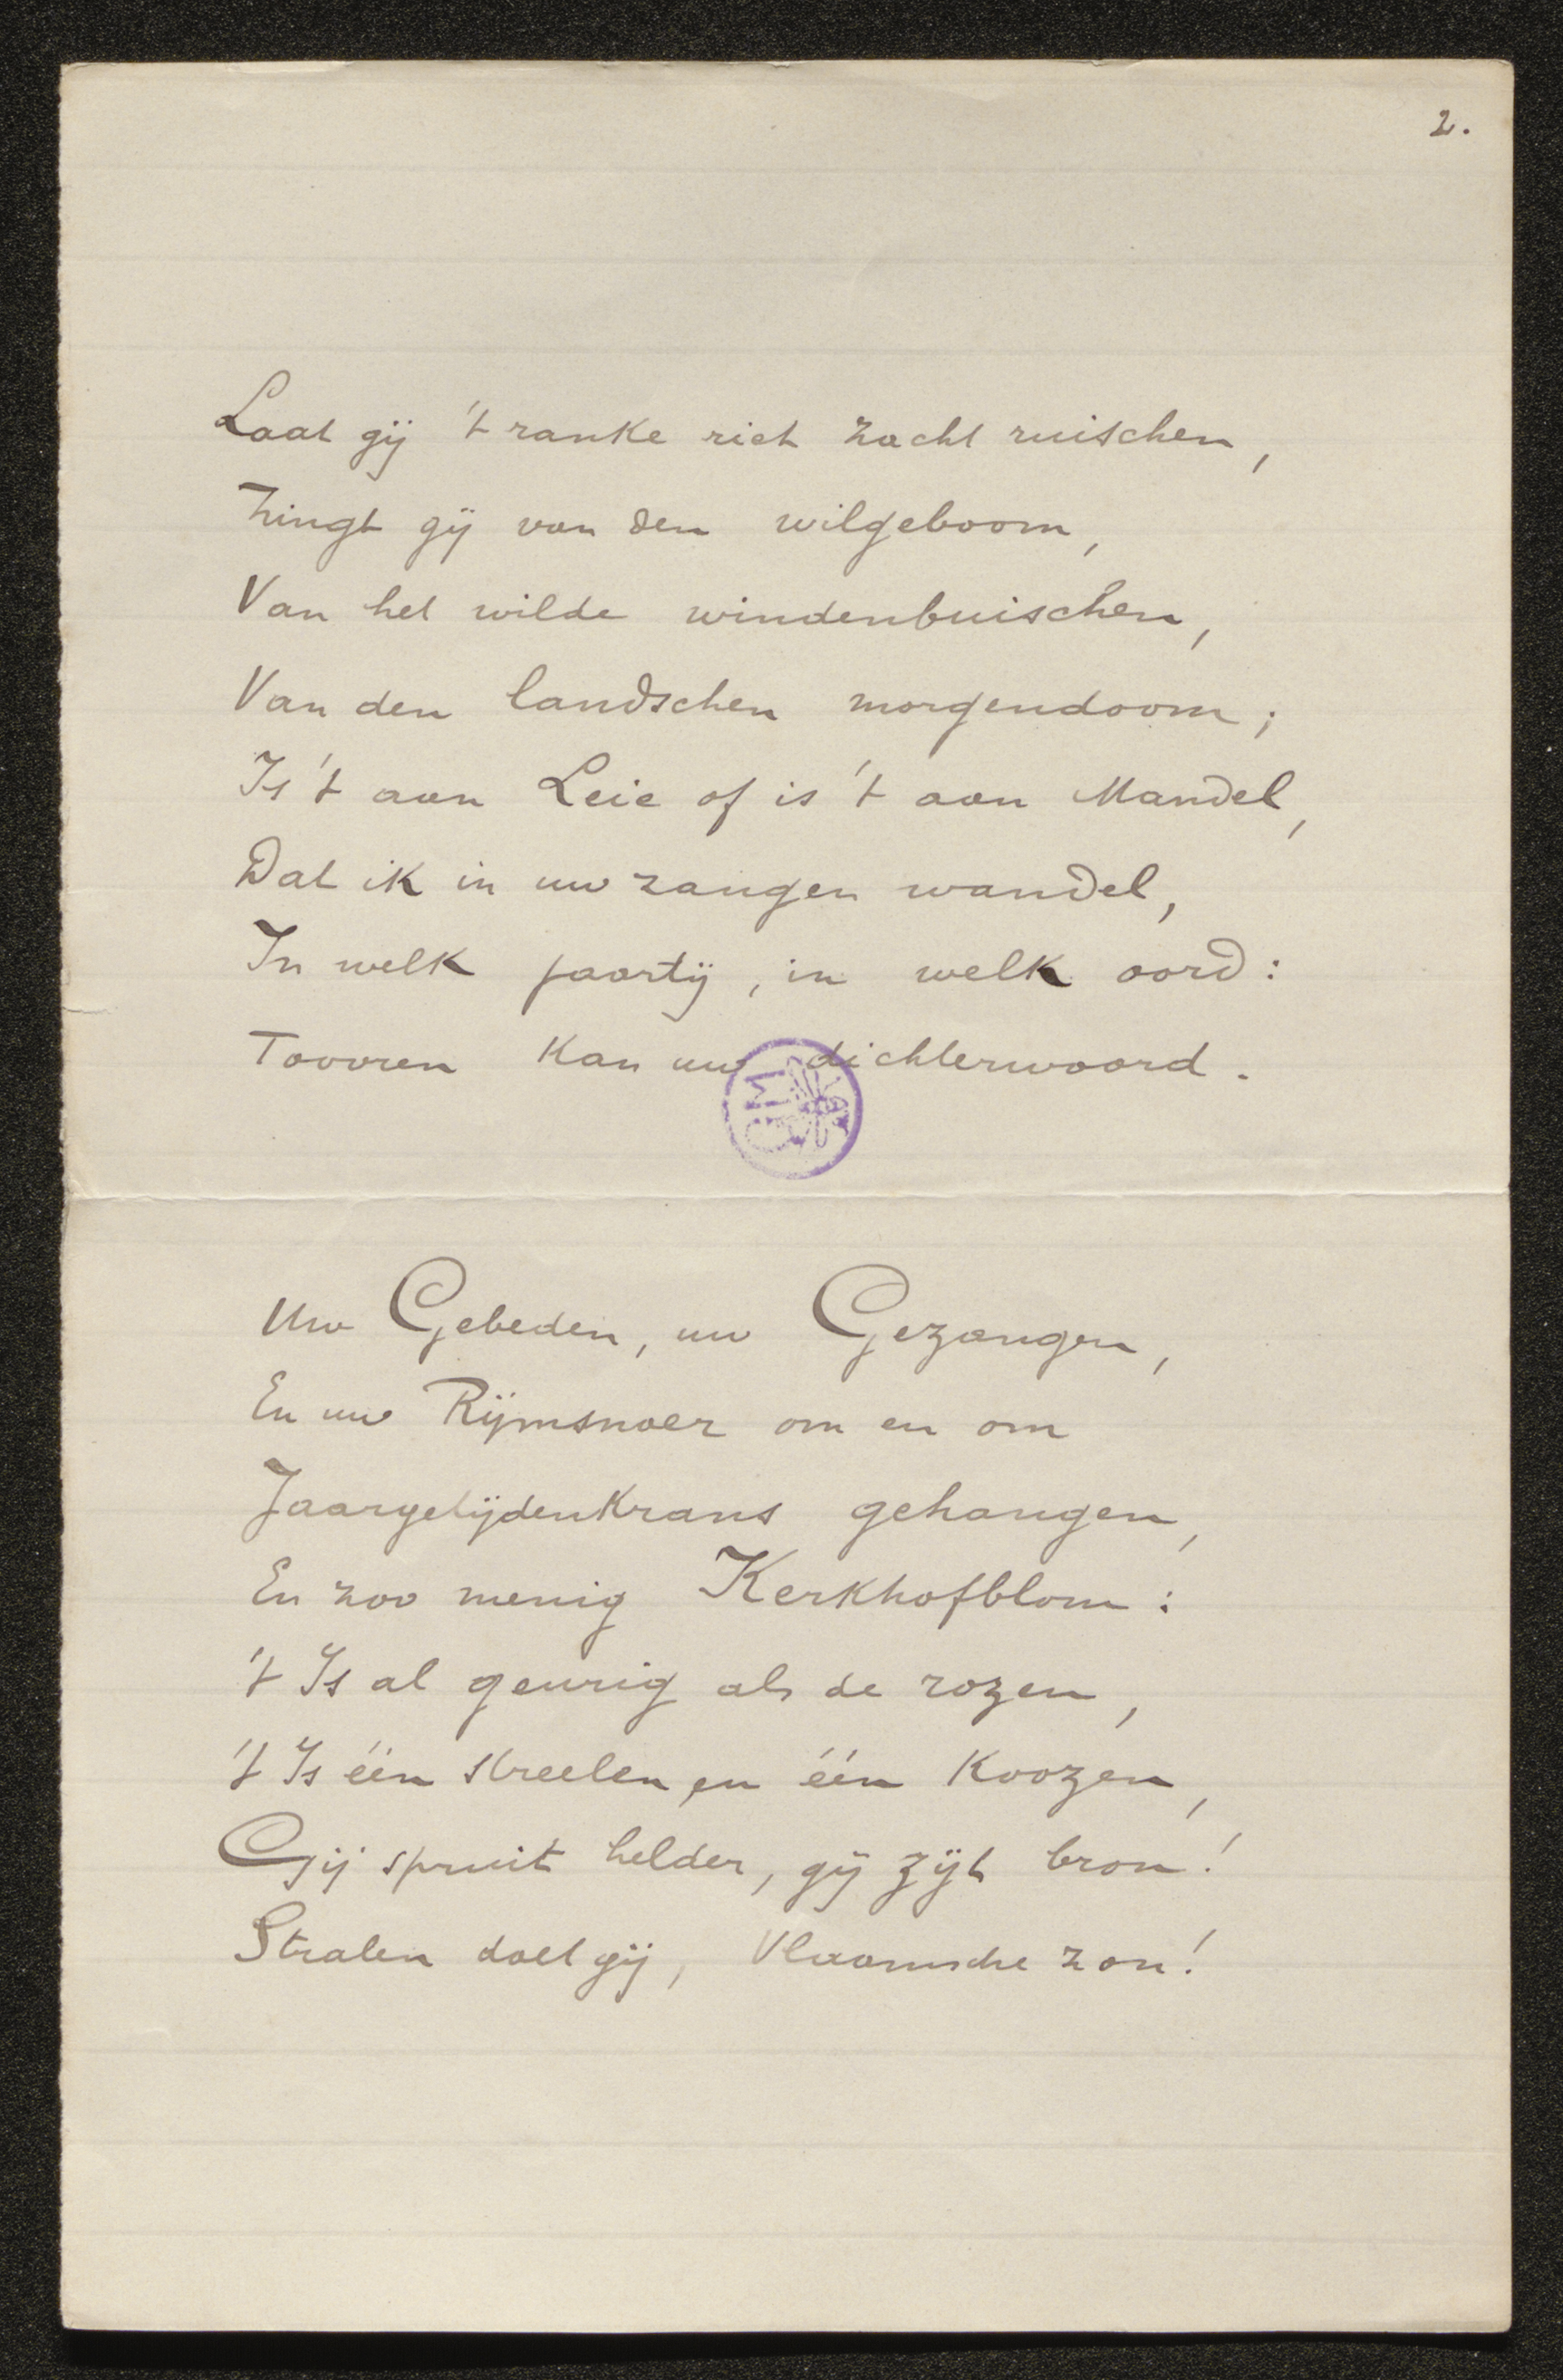 2.
Laat gij 't ranke riet zacht ruischen,
Zingt gij van den wilgeboom,
Van het wilde windenbuischen,
Van den landschen morgendoom;
Is 't aan Leie of is 't aan Mandel,
Dat ik in uw zangen wandel,
In welk jaartij, in welk oord:
Toovren kan uw dichterwoord.
GM
Uw Gebeden, uw Gezangen,
En uw Rijmsnoer om en om
Jaargetijdenkrans gehangen,
En zoo menig Kerkhofblom:
't Is al geurig als de rozen,
't Is één streelen, en één koozen,
Gij spruit helder, gij zijt bron!
Stralen doet gij, Vlaamsche zon!